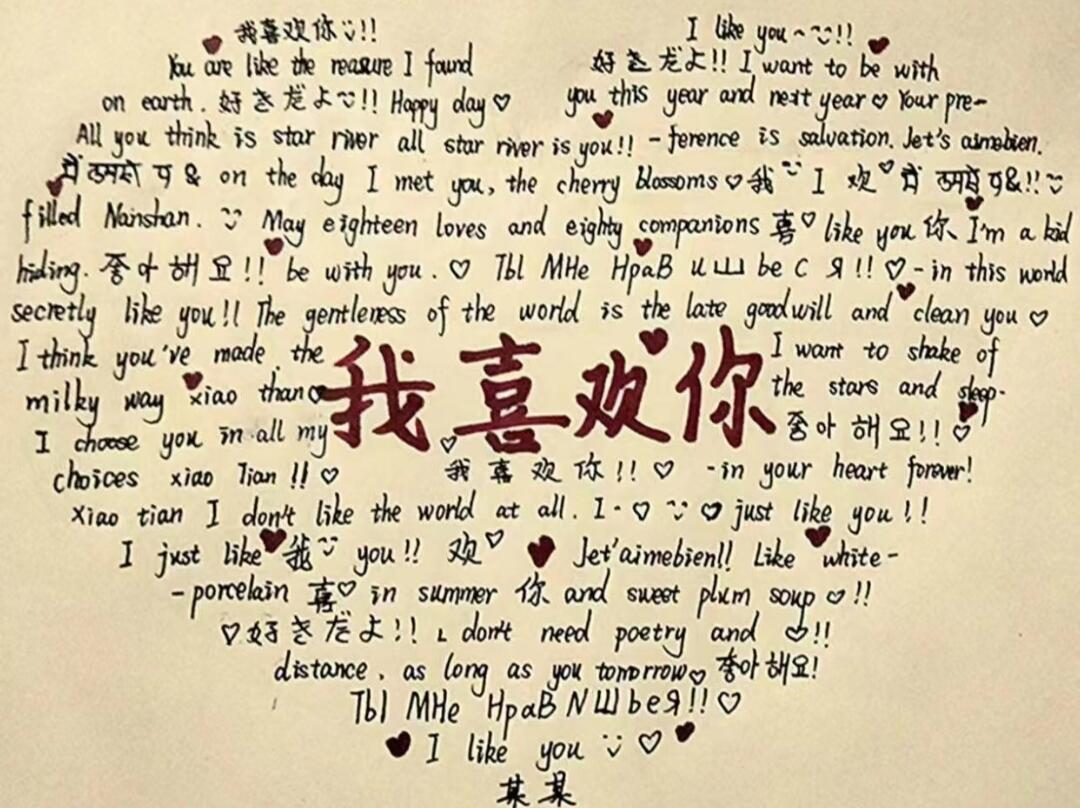 我喜欢你!! I like you~!!
You are like the reasure I found 好きだよ!! I want to be with
on earth. 好きだよ!! Happy day♡ you this year and next year♡ Your pre-
All you think is star river all star river is you!! -ference is salvation. Jet's aimebien.
& on the day I met you, the cherry blossoms♡我 I 欢♡ &!!
filled Nanshan. May eighteen loves and eighty companions 喜♡ like you 你 I'm a kid
hiding. 좋아해요!! be with you. ♡ Tbl MHe HpaB иШ be C Я!! ♡-in this world
secretly like you!! The gentleness of the world is the late goodwill and clean you♡
I think you've made the
milky way xiao than♡
I choose you in all my
choices xiao Tian!!♡
我喜欢你
I want to shake of
the stars and sleep-
좋아해요!!♡
♡我喜欢你!!♡ -in your heart forever!
xiao tian I don't like the world at all. I-♡ ♡ just like you!!
I just like 我 you!! 欢♡ Jet'aimebien!! Like white-
-porcelain 喜♡ in summer 你 and sweet plum soup♡!!
♡好きだよ!! I don't need poetry and ♡!!
distance, as long as you tomorrow♡ 좋아해요!
Tbl MHe HpaB NШ be Я!!♡
I like you ♡
某某